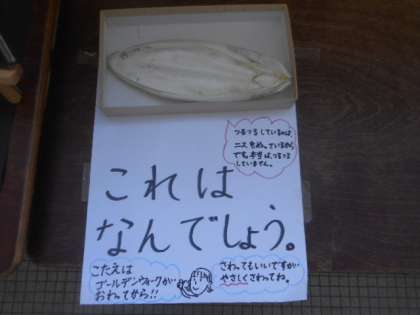 つるつるしているのは、
ニスをぬっているから
です。本当は、つるつる
していません。
これは、
なんでしょう。
こたえは
ゴールデンウィークが
おわってから!!
さわってもいいですが
やさしくさわってね。